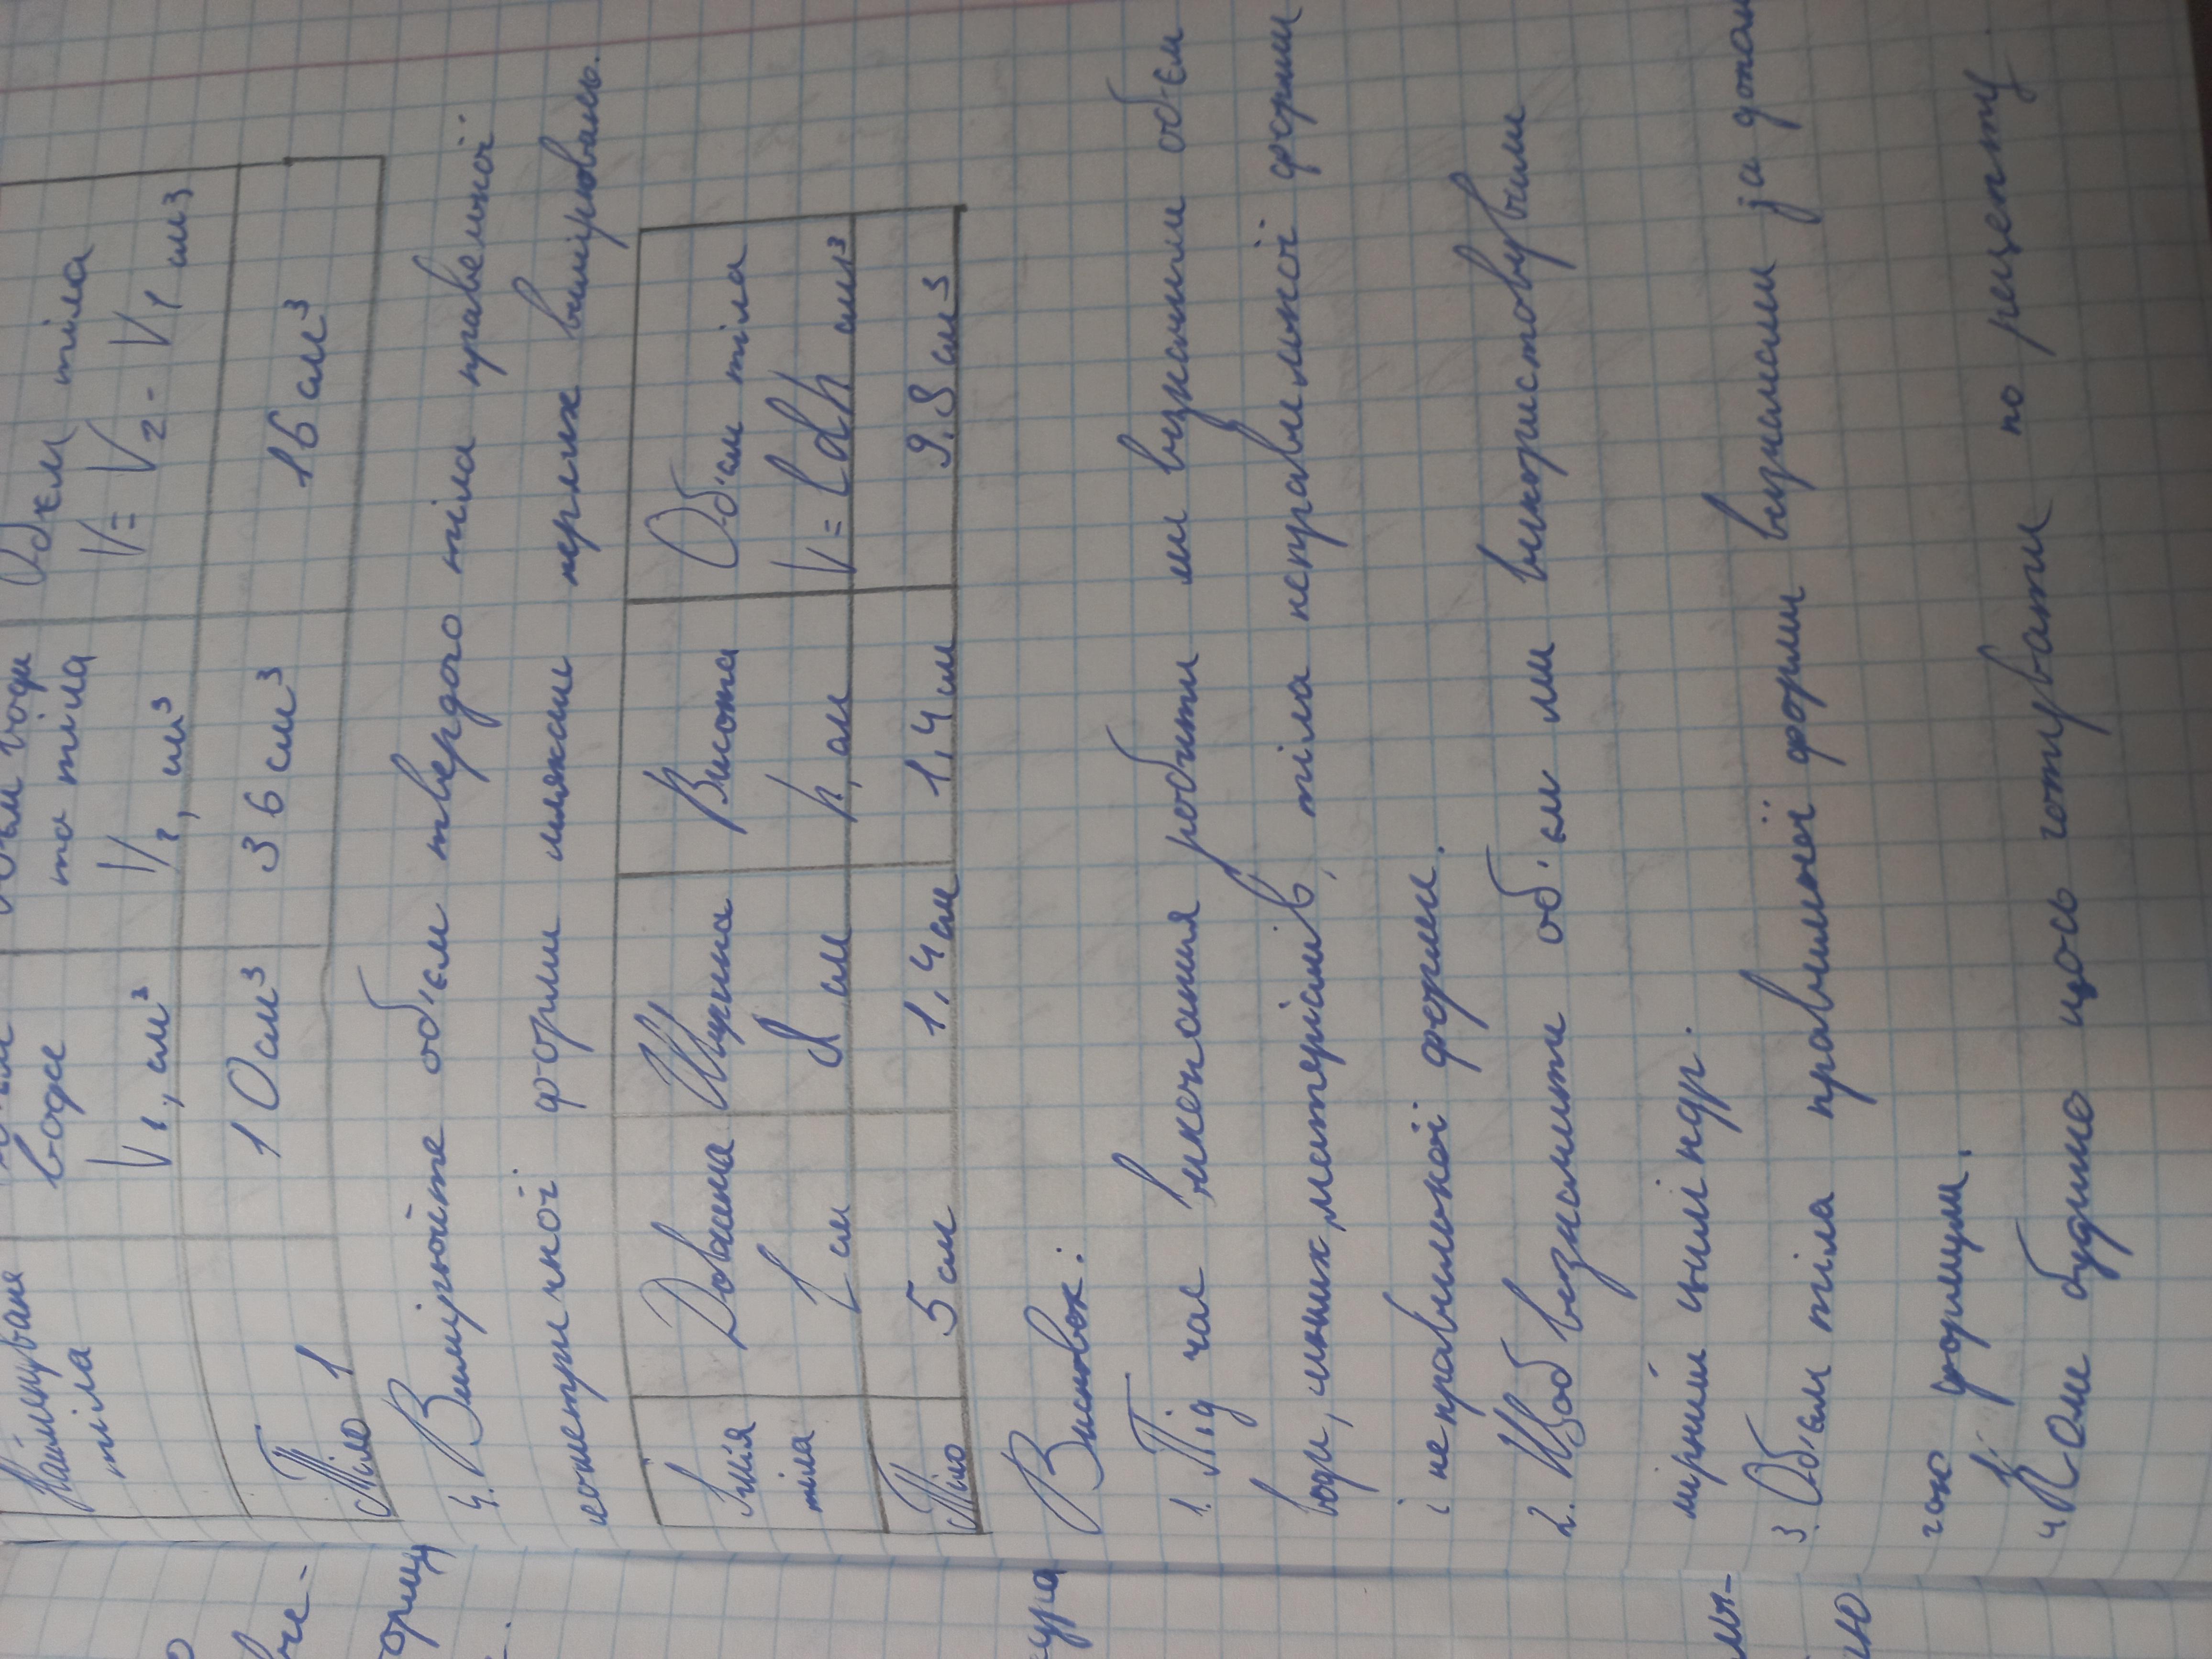 Найменування
тіла
води
V₁, см³
та тіла
V₂, см³
Обєм тіла
V = V₂ - V₁ см³
Тіло 1
10 см³
36 см³
16 см³
4. Виміряйте об'єм твердого тіла правельної
геометричної форми шляхом перших вимірювань.
Імя
тіла
Довжина
l см
Ширина
d см
Висота
h, см
Об'єм тіла
V = ldh см³
Тіло
5 см
1,4 см
1,4 см
9.8 см3
Висновок:
1. Під час виконання робити ми визначили об'єм
води, тіла неправельної форми
і неправильної форми.
2. Щоб визначити об'єм ми використовували
мірний циліндр.
3. Об'єм тіла правильної форми визначали за допом
гою
4. Коли будимо щось готувати по рецепту